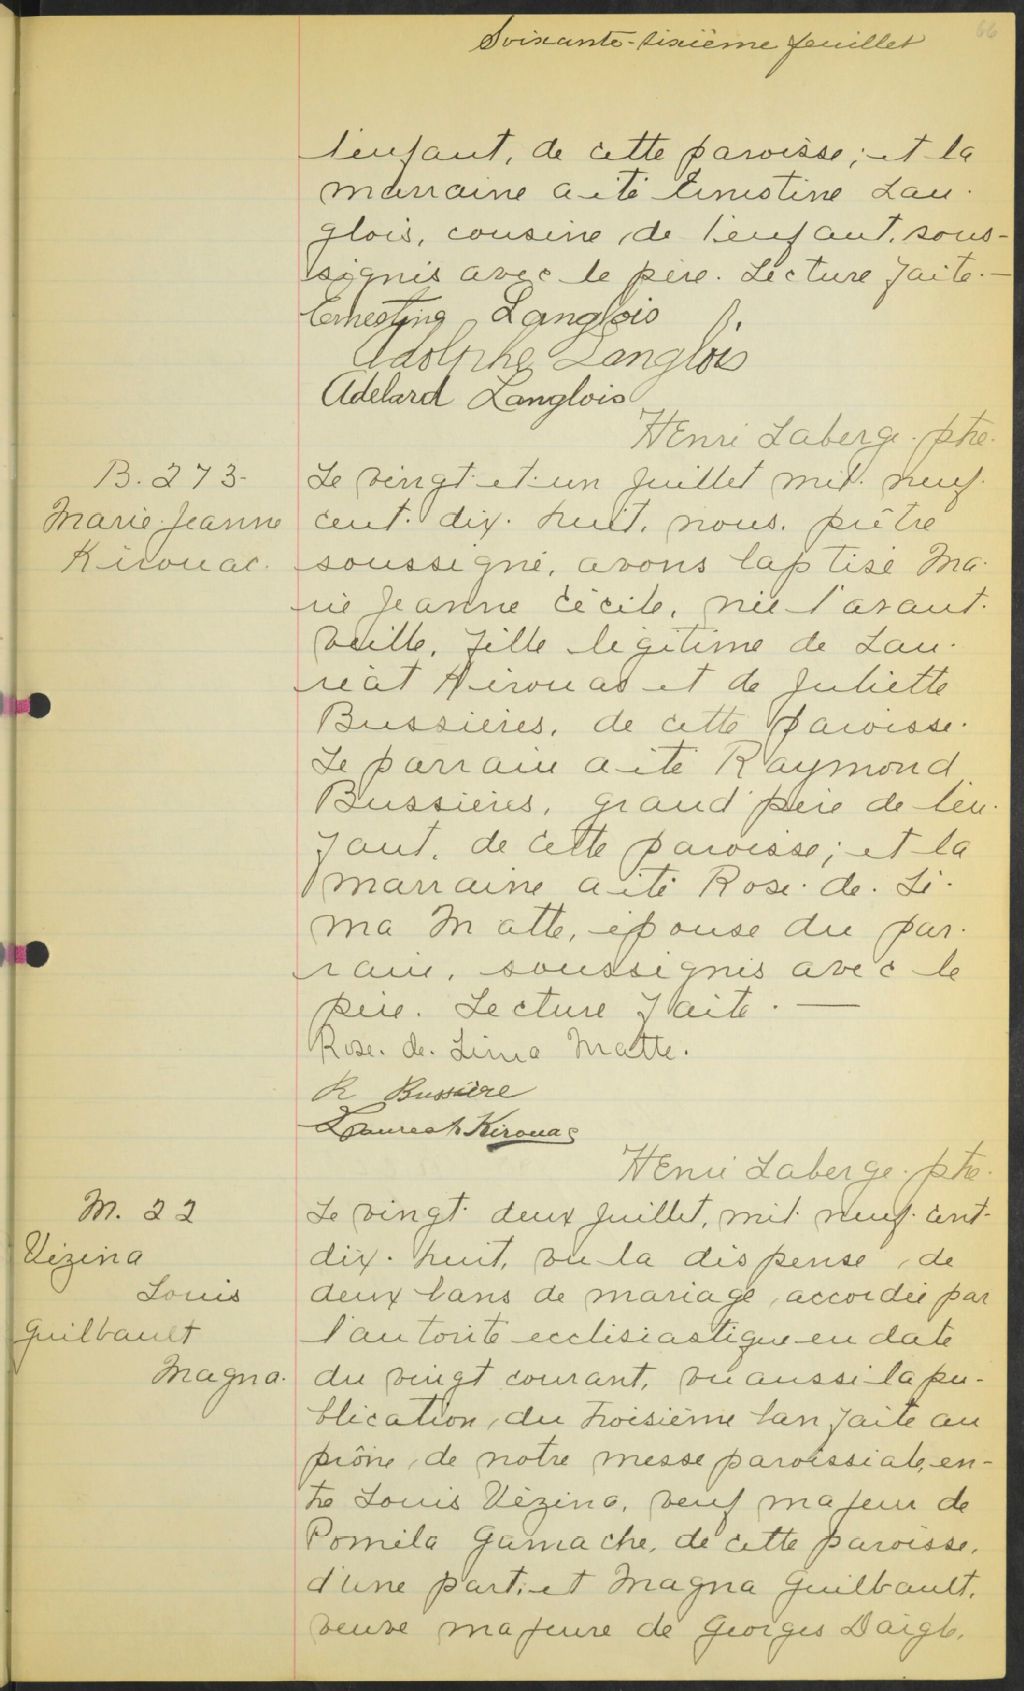 Soixante-sixième feuillet
66
l'enfant, de cette paroisse; et la
marraine a été Ernestine Lan-
glois, cousine de l'enfant, sous-
signés avec le père. Lecture faite.—
Ernestine Langlois
Adolphe Langlois
Adelard Langlois
Henri Laberge. ptre.
B. 273-
Marie-Jeanne
Kirouac.
Le vingt-et-un Juillet mil. neuf.
cent. dix. huit, nous, prêtre
soussigné, avons baptisé Ma-
rie Jeanne Cécile, née l'avant-
veille, fille légitime de Lau-
réat Kirouac et de Juliette
Bussières, de cette paroisse.
Le parrain a été Raymond
Bussières, grand'père de l'en-
fant, de cette paroisse; et la
marraine a été Rose. de. Li-
ma Matte, épouse du par-
rain, soussignés avec le
père. Lecture faite. —
Rose. de. Lima Matte.
R Bussière
Laureat Kirouac
Henri Laberge. ptre.
M. 22
Vézina
Louis
Guilbault
Magna.
Le vingt-deux Juillet, mil neuf-cent-
dix-huit, vu la dispense de
deux bans de mariage accordée par
l'autorité ecclésiastique en date
du vingt courant, vu aussi la pu-
blication du troisième ban faite au
prône de notre messe paroissiale, en-
tre Louis Vézina, veuf majeur de
Pomela Gamache, de cette paroisse,
d'une part, et Magna Guilbault,
veuve majeure de Georges Daigle,